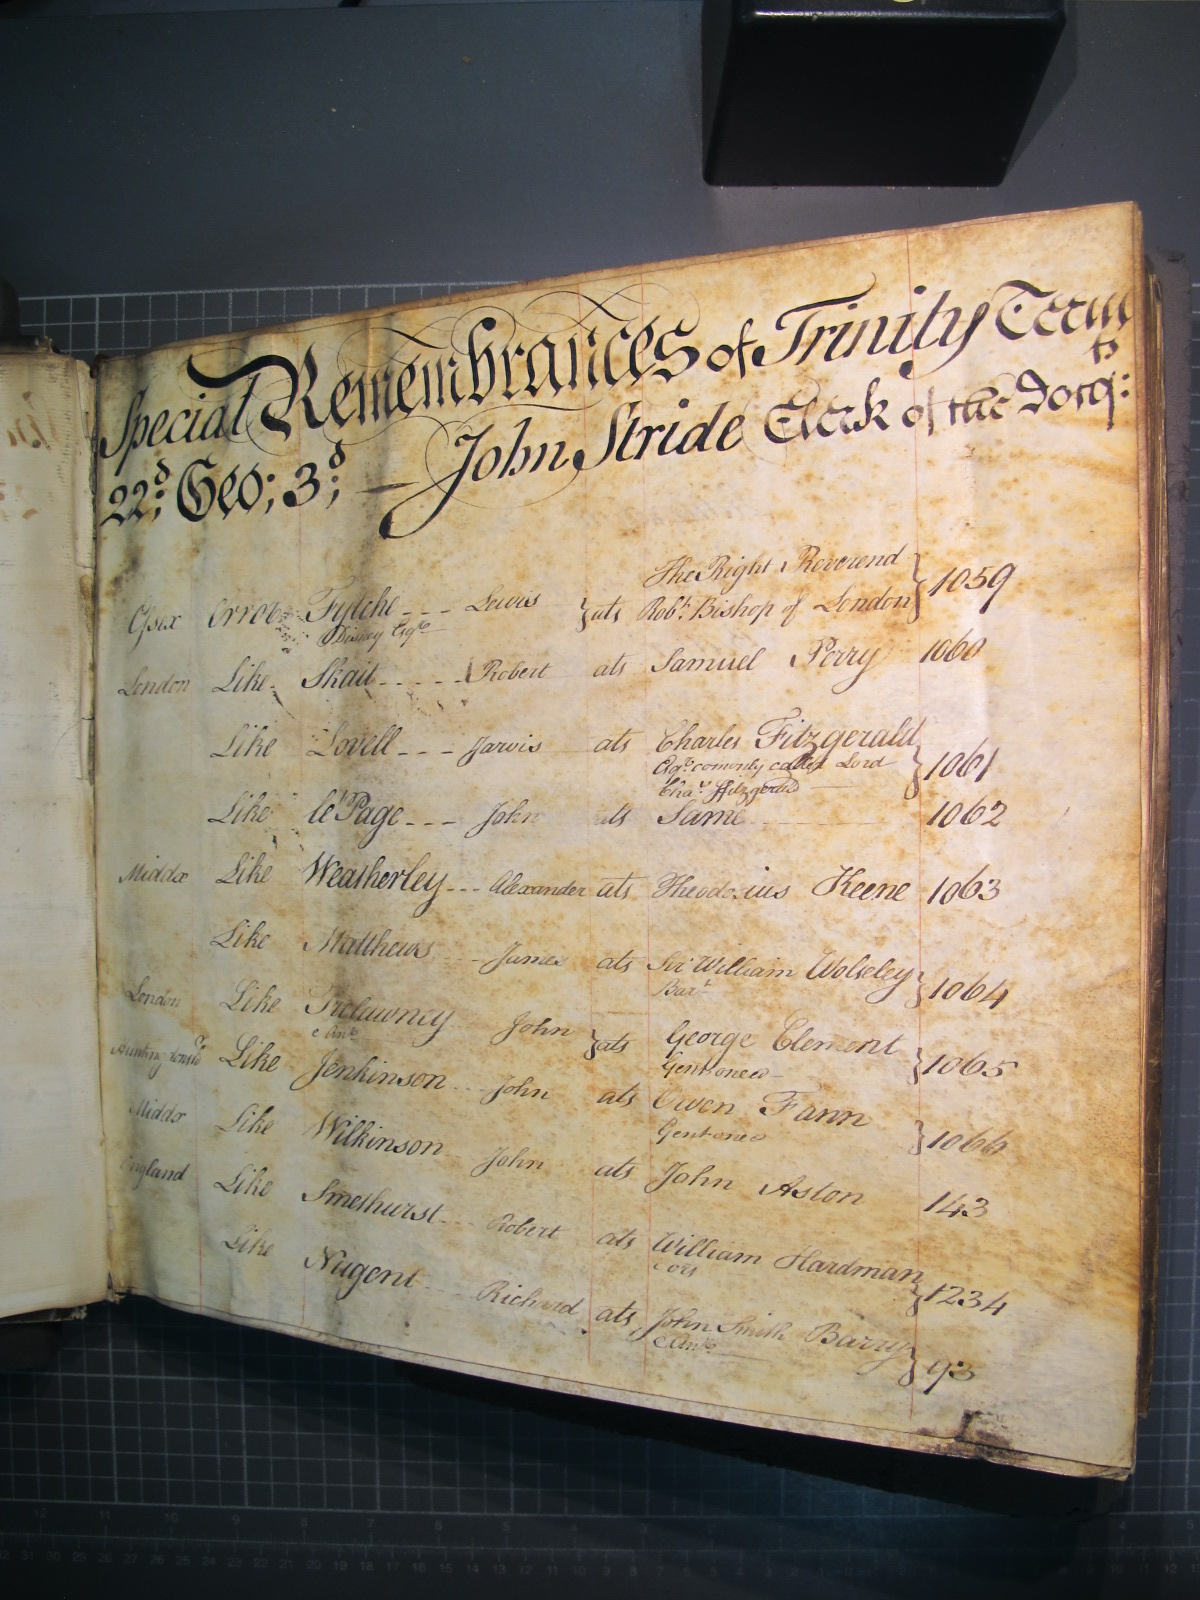 Special Remembrances of Trinity Term
22d: Geo; 3d; — John Stride Clerk of the Docqts:
The Right Reverend
Essex Error Fytche --- Lewis } ats Robt. Bishop of London } 1059
Disney Esqre
London Like Skait ----- Robert ats Samuel Perry 1060
Like Lovell --- Jarvis ats Charles Fitzgerald } 1061
Esqr. comonly called Lord
Chas. Fitzgerald
Like le Page --- John ats Same 1062
Middx Like Weatherley --- Alexander ats Theodosius Keene 1063
Like Matthews --- James ats Sir William Wolseley } 1064
Bart
London Like Trelawney John } ats George Clement } 1065
Gent one &c
Like Jenkinson -- John ats Owen Fann } 1066
Gent one &c
Middx Like Wilkinson -- John ats John Aston 143
England Like Smethurst -- Robert ats William Hardman } 1234
Like Nugent -- Richard ats John Smith Barry } 93